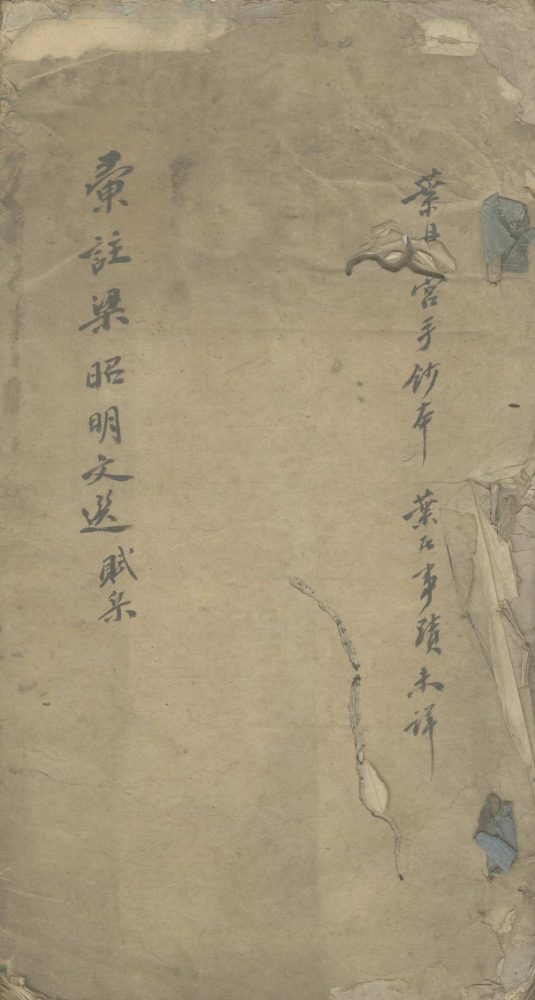 葉 宮手鈔本 葉氏事蹟未詳
彙註梁昭明文選 賦